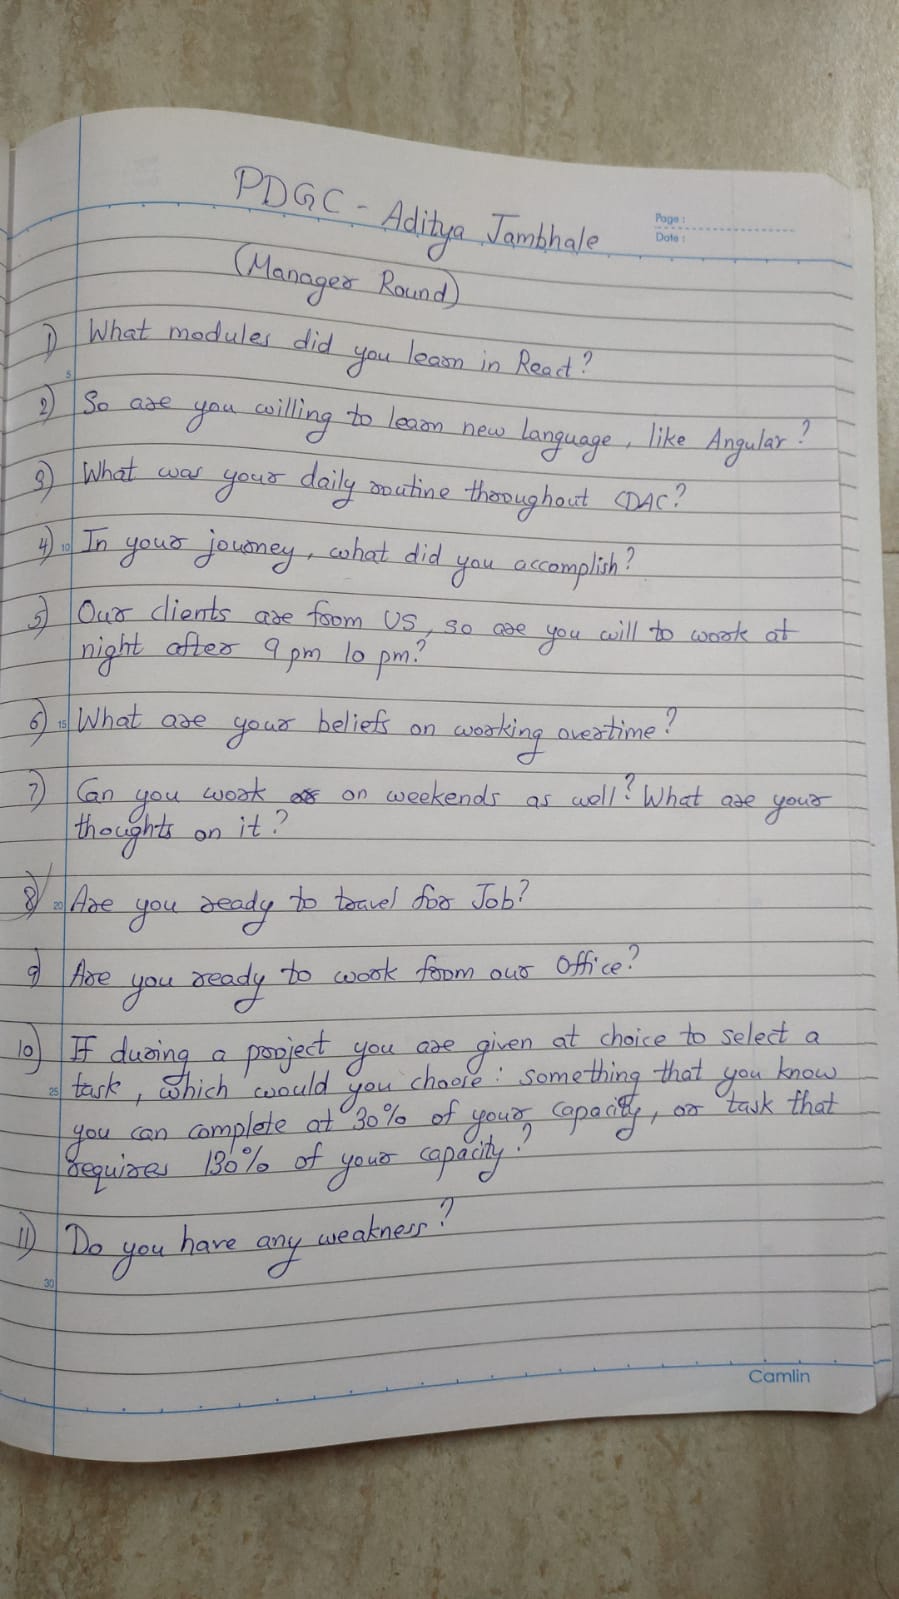 PDGC - Aditya Jambhale
Page :
Date :
(Manager Round)
1) What modules did you learn in React?
5
2) So are you willing to learn new language, like Angular?
3) What was your daily routine throughout CDAC?
4) 10 In your journey, what did you accomplish?
5) Our clients are from US, so are you will to work at
night after 9 pm 10 pm?
6) 15 What are your beliefs on working overtime?
7) Can you work on weekends as well? What are your
thoughts on it?
8) 20 Are you ready to travel for Job?
9) Are you ready to work from our Office?
10) If during a project you are given at choice to select a
25 task, which would you choose: something that you know
you can complete at 30% of your capacity, or task that
requires 130% of your capacity?
11) Do you have any weakness?
30
Camlin